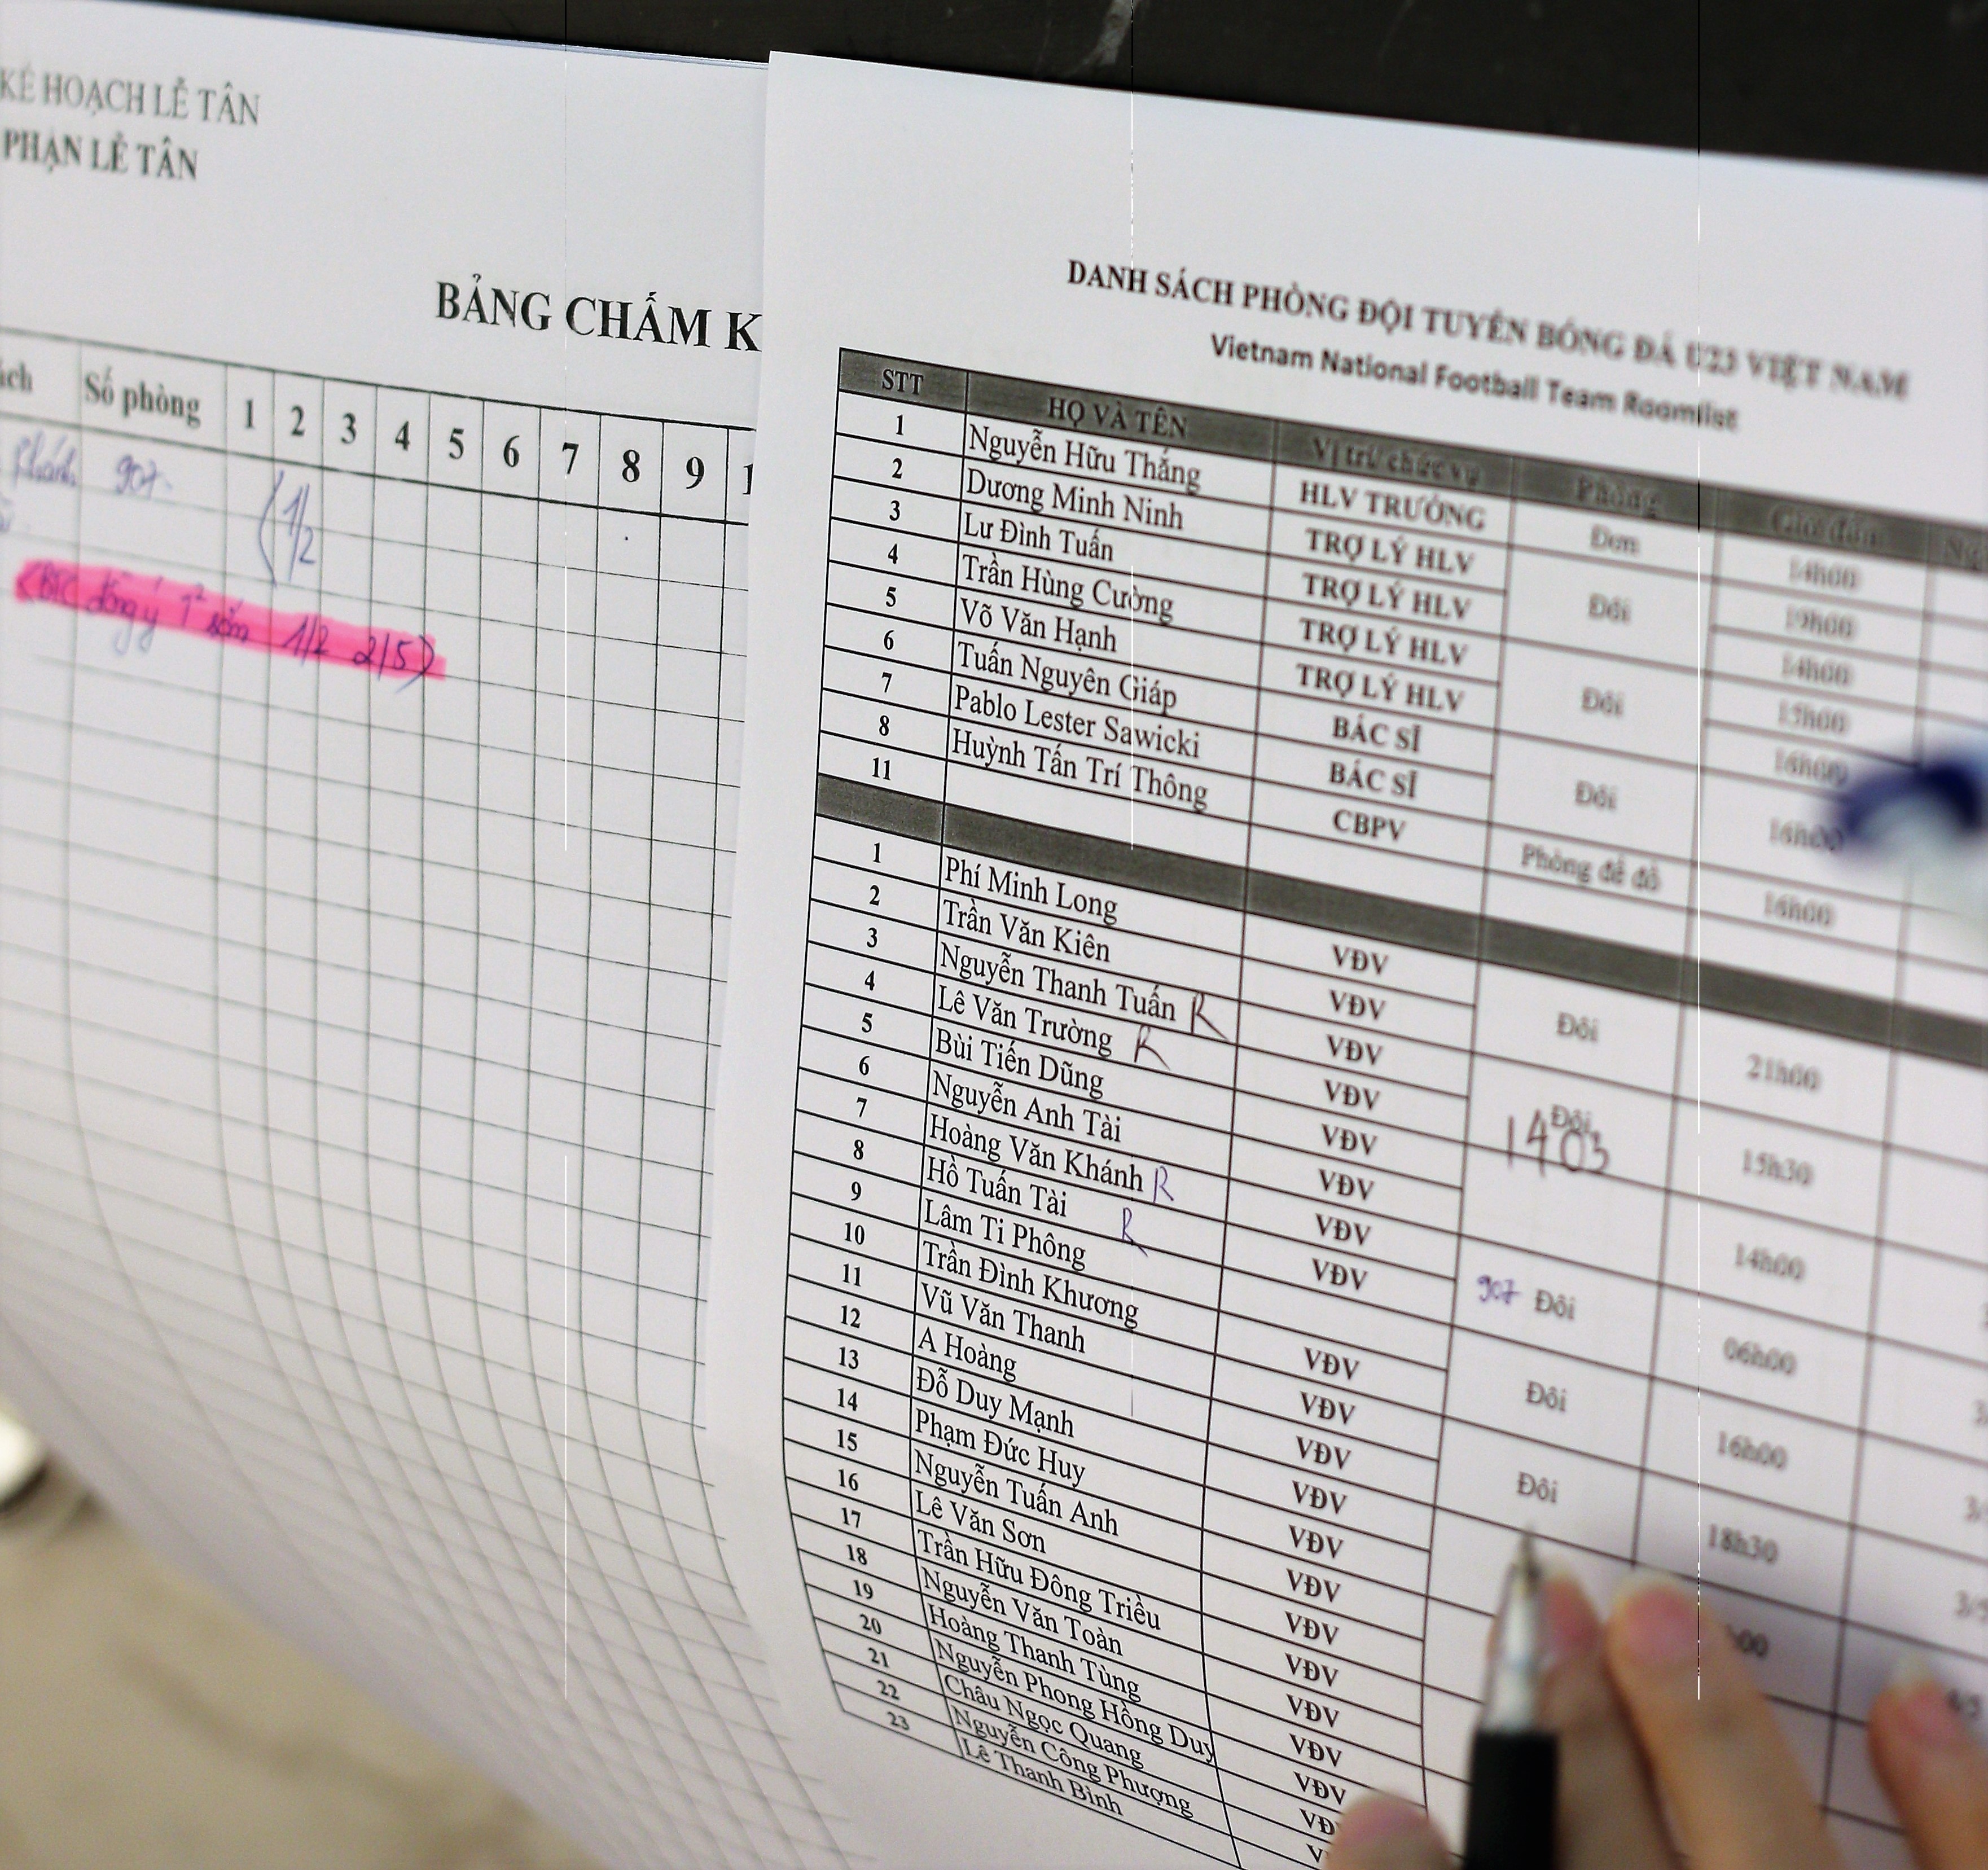 KẾ HOẠCH LỄ TÂN
PHẬN LỄ TÂN
BẢNG CHẤM K
Số phòng 1 2 3 4 5 6 7 8 9 1
Khánh 907 (1/2
(BTC đồng ý sớm 1/2 2/5)
DANH SÁCH PHÒNG ĐỘI TUYỂN BÓNG ĐÁ U23 VIỆT NAM
Vietnam National Football Team Roomlist
STT HỌ VÀ TÊN Vị trí/ chức vụ Phòng Giờ đến
1 Nguyễn Hữu Thắng HLV TRƯỞNG Đơn 14h00
2 Dương Minh Ninh TRỢ LÝ HLV Đôi 19h00
3 Lư Đình Tuấn TRỢ LÝ HLV 14h00
4 Trần Hùng Cường TRỢ LÝ HLV Đôi 15h00
5 Võ Văn Hạnh TRỢ LÝ HLV 16h00
6 Tuấn Nguyên Giáp BÁC SĨ Đôi 16h00
7 Pablo Lester Sawicki BÁC SĨ
8 Huỳnh Tấn Trí Thông CBPV Phòng để đồ 16h00
11
1 Phí Minh Long VĐV Đôi 21h00
2 Trần Văn Kiên VĐV
3 Nguyễn Thanh Tuấn R VĐV Đôi 1403 15h30
4 Lê Văn Trường R VĐV
5 Bùi Tiến Dũng VĐV 14h00
6 Nguyễn Anh Tài VĐV
7 Hoàng Văn Khánh R VĐV 907 Đôi 06h00
8 Hồ Tuấn Tài R VĐV
9 Lâm Ti Phông Đôi 16h00
10 Trần Đình Khương VĐV
11 Vũ Văn Thanh VĐV Đôi 18h30
12 A Hoàng VĐV
13 Đỗ Duy Mạnh VĐV
14 Phạm Đức Huy VĐV
15 Nguyễn Tuấn Anh VĐV
16 Lê Văn Sơn VĐV
17 Trần Hữu Đông Triều VĐV
18 Nguyễn Văn Toàn VĐV
19 Hoàng Thanh Tùng VĐV
20 Nguyễn Phong Hồng Duy VĐV
21 Châu Ngọc Quang VĐV
22 Nguyễn Công Phượng VĐ
23 Lê Thanh Bình V